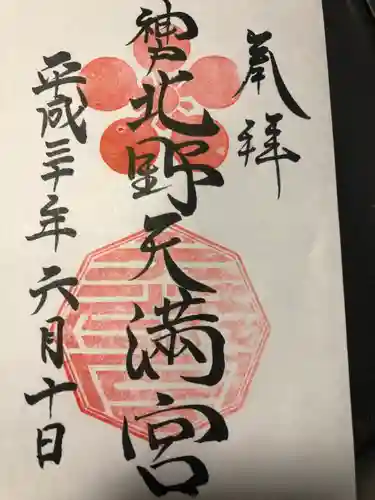 奉拝
神戸北野天満宮
平成三十年六月十日